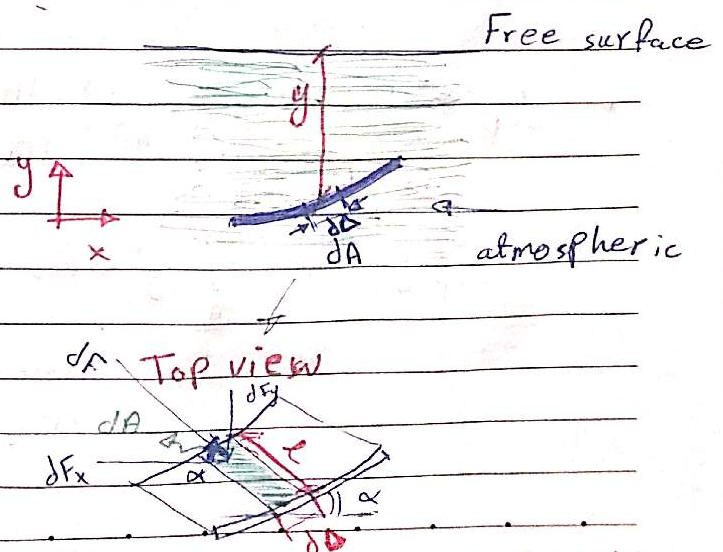 Free surface
y
y
x
dA
atmospheric
dF
Top view
dFy
dA
dFx
α
α